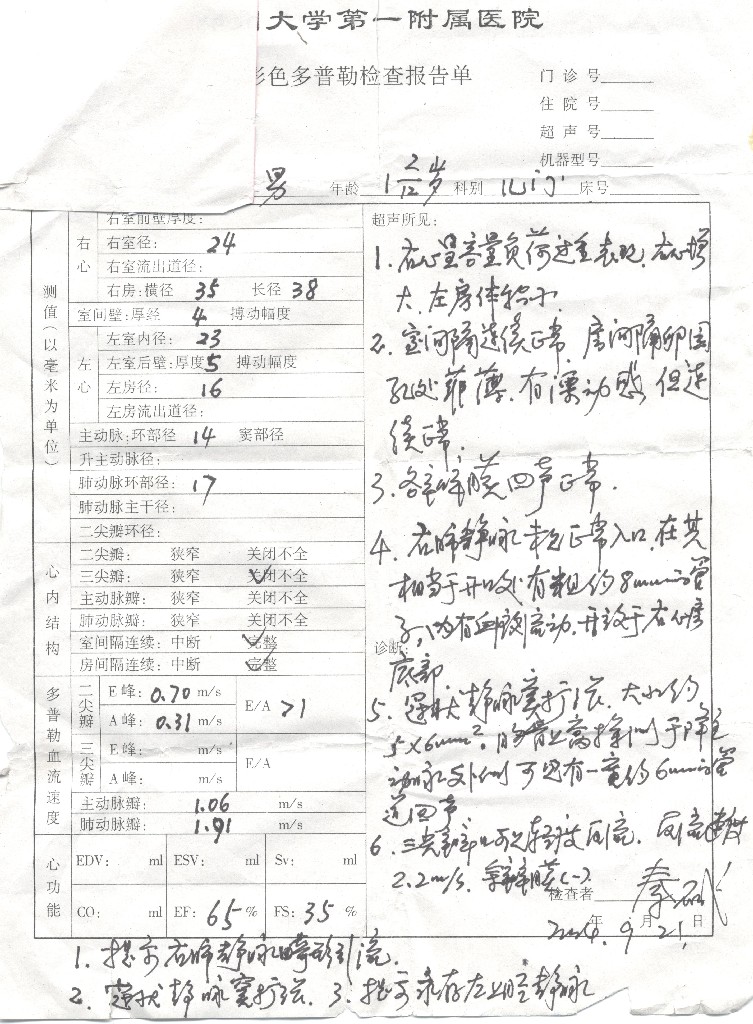 大学第一附属医院
彩色多普勒检查报告单
门诊号
住院号
超声号
机器型号
男 年龄 1 2/12岁 科别 儿门 床号
测值(以毫米为单位)
右心
右室前壁厚度:
右室径: 24
右室流出道径:
右房:横径 35 长径 38
室间壁:厚经 4 搏动幅度
左心
左室内径: 23
左室后壁:厚度 5 搏动幅度
左房径: 16
左房流出道径:
主动脉:环部径 14 窦部径
升主动脉径:
肺动脉环部径: 17
肺动脉主干径:
二尖瓣环径:
心内结构
二尖瓣: 狭窄 关闭不全
三尖瓣: 狭窄 关闭不全 ✓
主动脉瓣: 狭窄 关闭不全
肺动脉瓣: 狭窄 关闭不全
室间隔连续: 中断 完整 ✓
房间隔连续: 中断 完整 ✓
多普勒血流速度
二尖瓣 E峰: 0.70 m/s
A峰: 0.31 m/s
E/A >1
三尖瓣 E峰: m/s
A峰: m/s
E/A
主动脉瓣: 1.06 m/s
肺动脉瓣: 1.91 m/s
心功能
EDV: ml ESV: ml Sv: ml
CO: ml EF: 65 % FS: 35 %
超声所见:
1. 右心呈容量负荷过重表现,右心增
大,左房体积小
2. 室间隔连续正常,房间隔卵圆
孔处菲薄,有漂动感,但连
续正常.
3. 各瓣膜回声正常.
4. 右肺静脉未见正常入口,在其
相当于开口处有粗约8mm的管
子,内有血液流动,开放于右心房
底部.
诊断:
5. 冠状静脉窦扩张,大小约
5×6mm²,胸骨上窝探测于降主
动脉外侧可见有一宽约6mm管
道回声
6. 三尖瓣口可见轻度反流,反流速度
2.2m/s,
检查者 秦
2004年9月21日
1. 提示右肺静脉畸形引流.
2. 冠状静脉窦扩张. 3. 提示永存左上腔静脉